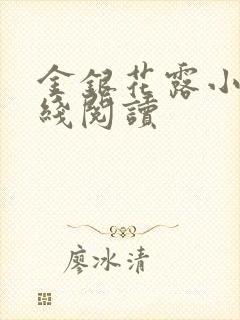 金銀花露小
綫閱讀
廖冰清